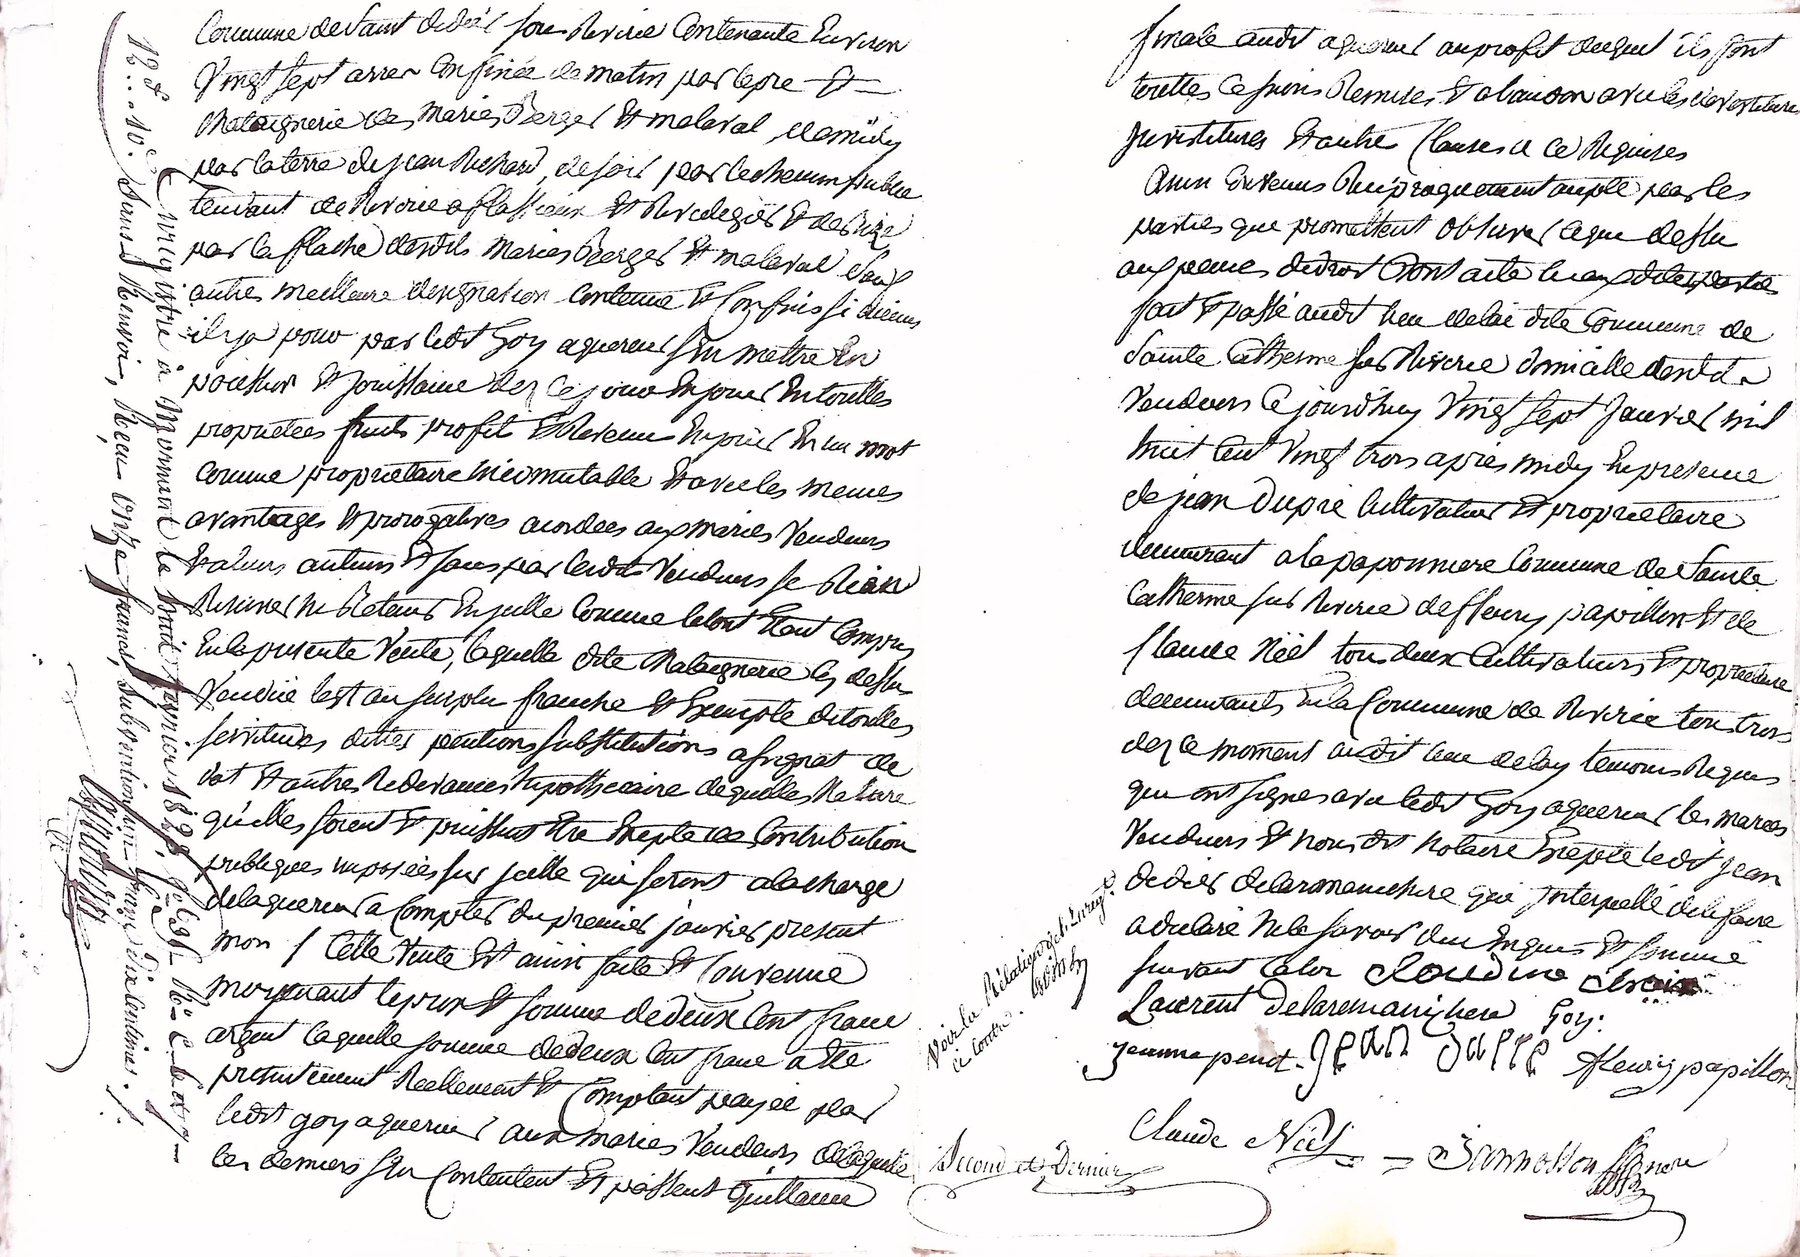 Commune de Saint didier sous Riverie Contenante Environ
Vingt sept arres Confinée de matin par le pre Et
Chataignerie des Maries Berger Et malaval, demidy
par la terre de jean Richard, de soir par le chemin public
tendant de Riverie a flassieux Et Rivedegier Et de Bize
par la flache desdits Maries Berger Et malaval Sauf
autres meilleure designation contenue Et Confins si aucuns
il y a pour par ledit Goy aquereur s'En mettre En
possession Et jouissance dez ce jour En jouir En touttes
proprietees fruits profit Et Revenus En jouir En un mot
comme proprietaire incomutable Et avec les memes
avantages Et prerogatives acordees aux maries Vendeurs
Et a leurs auteurs Et sans par lesdits Vendeurs se Rien
Reserver ni Retenir En jcelle Comme letout Etant Compris
En la presente Vente, laquelle dite Chataignerie cy dessus
Vendue l'est au surplu franche Et Exempte de touttes
servitudes dettes pentions substitutions assignat de
dot Et autres Redevances hypothecaire de quelles Nature
qu'elles soient Et puissent Etre Exepte les Contribution
publiques imposées sur jcelle qui seront a la charge
de laquereur a Compter du premier janvier present
mois / Cette Vente Est ainsi faite Et Convenue
moyenant le prix Et somme de deux Cent franc
argent laquelle somme de deux Cent franc a Eté
presentement Reellement Et Comptant payée par
ledit goy aquereur aux maries Vendeurs de laquelle
ces derniers s'En Contentent Et passent quittance
12 d. 10.c Enregistré à Mornant le huit fevrier 1823, f.o 69 R.o C. 6 et 7
Sans Renvoi, Reçu onze francs, Subvention un franc dix centimes.
finale audit aquereur au profit duquel ils font
touttes Cessions Remises Et abandon avec les devestitures
jnvestitures Et autres Clauses a ce Requises
Ainsi Convenus Reciproquement acepté par les
parties que promettent observer ce que dessu
aux peines de droit Dont acte
fait Et passé audit lieu de lai dite Commune de
Sainte Catherine sur Riverie domicille desdits
Vendeurs Ce jourd'huy Vingt sept Janvier mil
huit Cent Vingt trois apres midy En presence
de jean Dupré Cultivateur Et proprietaire
demeurant a la paponniere Commune de Sainte
Catherine sur Riverie de fleury papillon Et de
Claude Néel tous deux Cultivateurs Et proprietaire
demeurants En la Commune de Riverie tous trois
dez ce moment audit lieu de lay temoins Requis
qui ont signes avec ledit Goy aquereur les maries
Vendeurs Et nous dit notaire Exepté ledit jean
didier delaremanichere qui jnterpellé de le faire
a declaré Ne le savoir du Enquis Et sommé
suivant la loi Cloudine
Laurent Delaremanichere Goy:
jeanne penet - jean dupre fleury papillon
Claude Néel
Voir la Rélation de l'Enreg.t
ci contre.
Second et Dernier